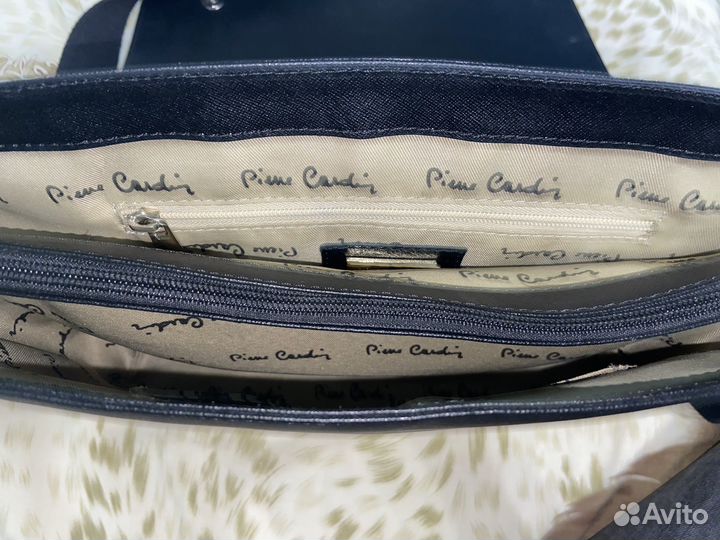 Pierre Cardin Pierre Cardin Pierre Cardin Pierre
Pierre Cardin Pierre Cardin
Pierre Cardin
Pierre Cardin Pierre Cardin Pierre Cardin
Avito